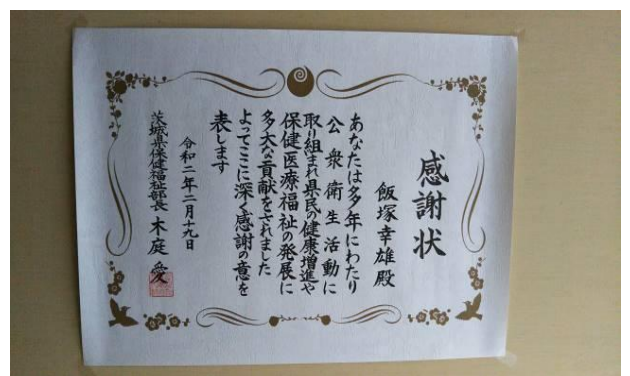 感謝状
飯塚幸雄殿
あなたは多年にわたり
公衆衛生活動に
取り組まれ県民の健康増進や
保健医療福祉の発展に
多大な貢献をされました
よってここに深く感謝の意を
表します
令和二年二月十九日
茨城県保健福祉部長 木庭愛